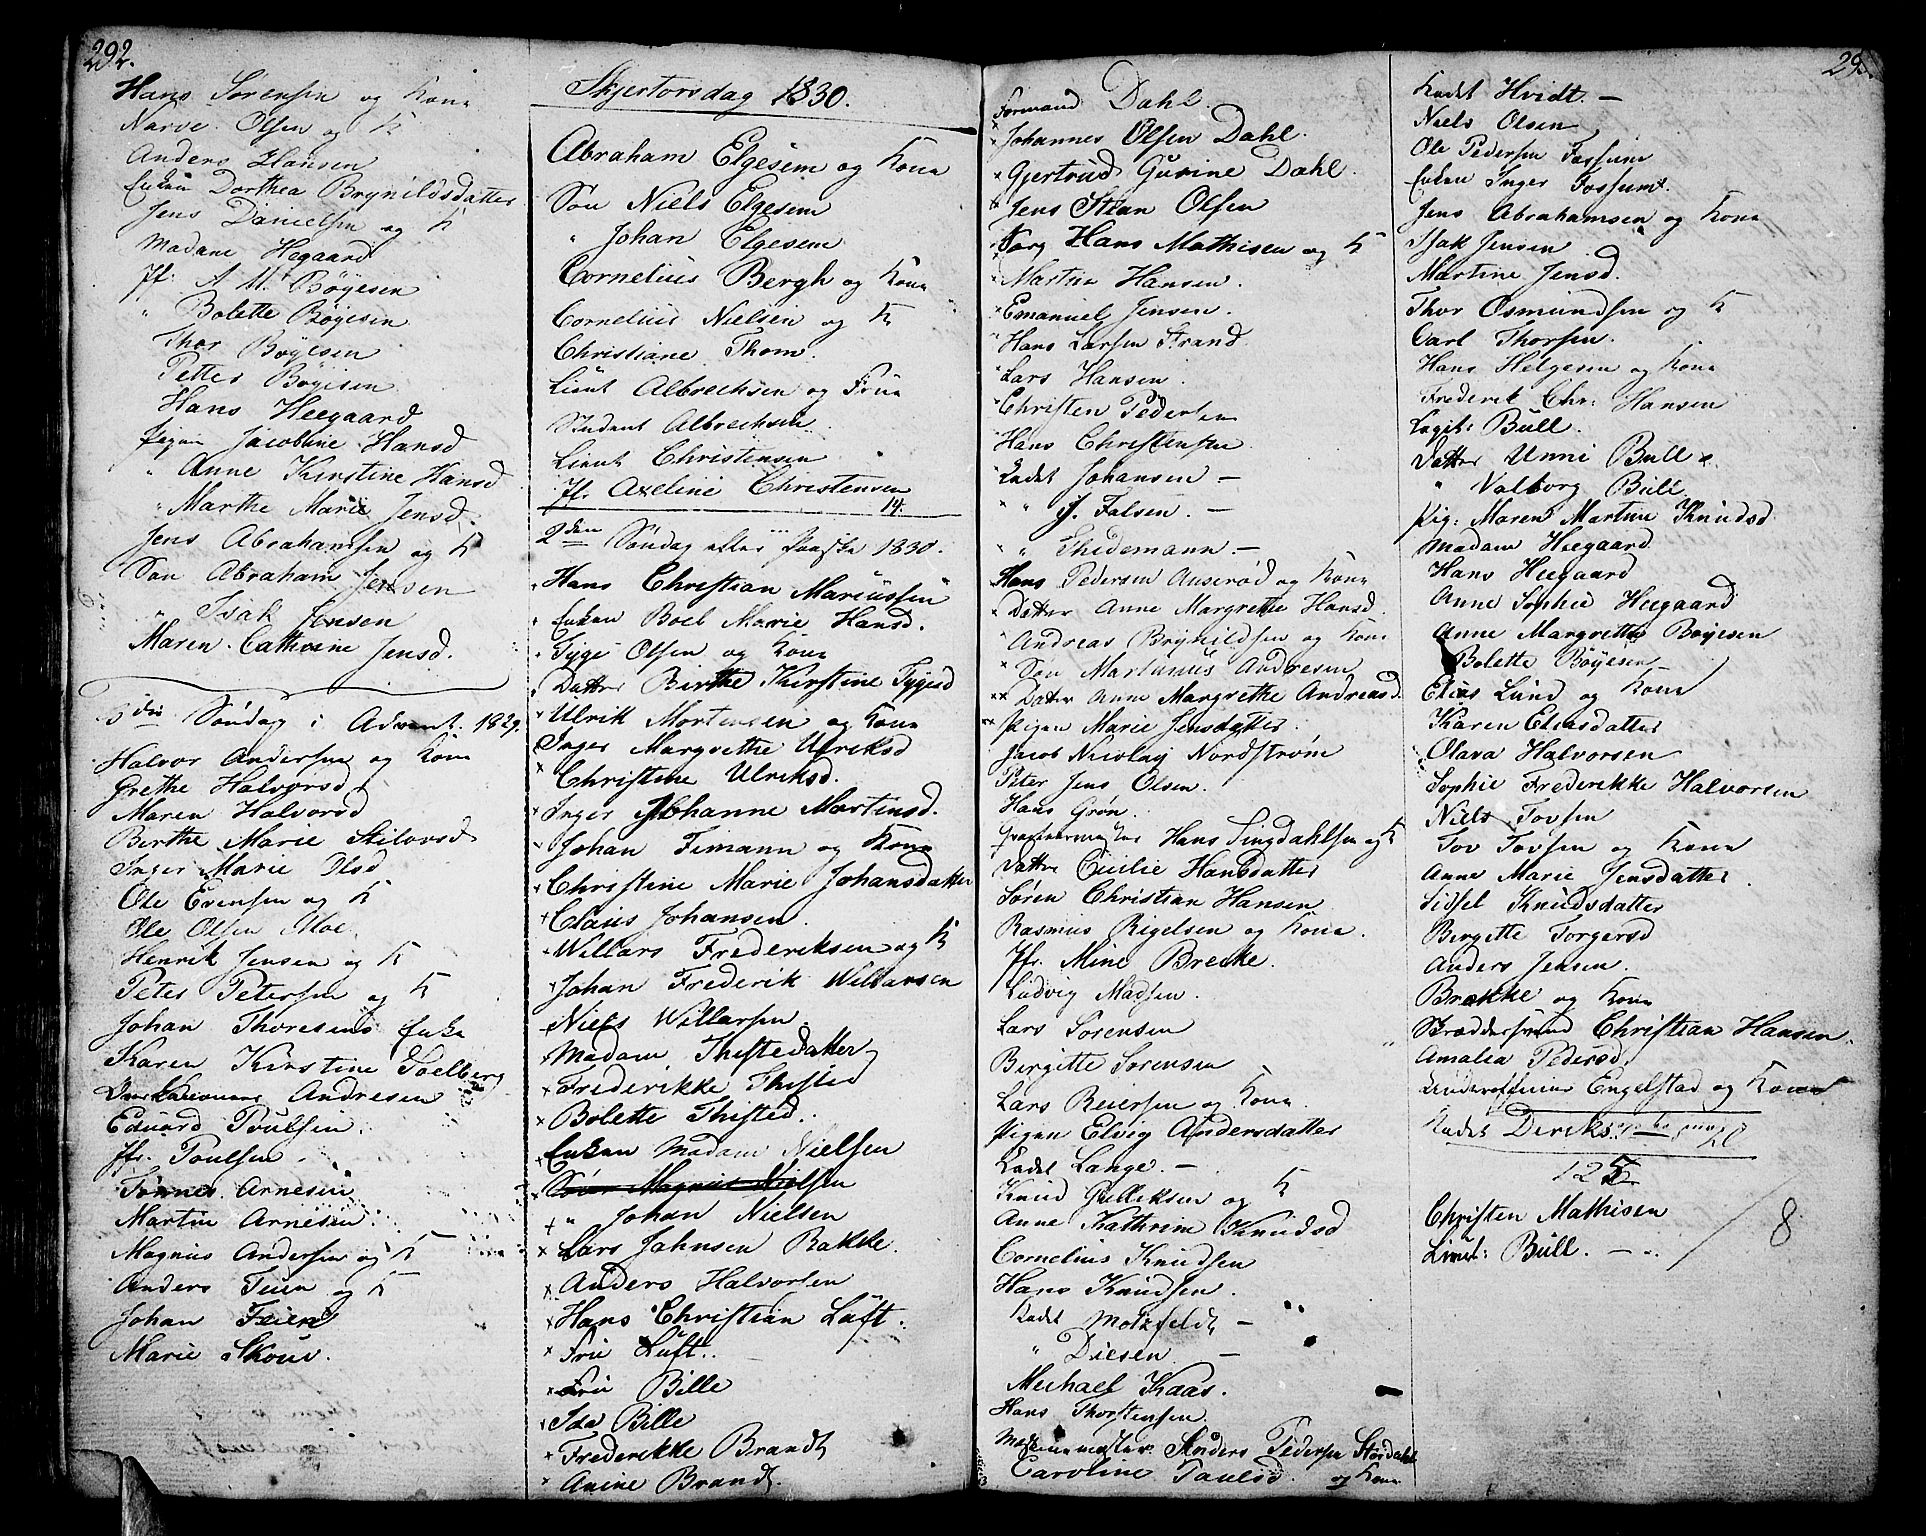 292.
Hans Sørensen og Kone
Narve Olsen og K
Anders Hansen
Enken Dorthea Brynildsdatter
Jens Danielsen og K
Madame Heegaard
Jfr. A. M. Bøyesen
" Bolette Bøyesen
Thor Bøyesen
Petter Bøyesen
Hans Heegaard
Pigen Jacobine Hansd
" Anne Kirstine Hansd
" Marthe Marie Jensd.
Jens Abrahamsen og K
Søn Abraham Jensen
" Isak Jensen
Maren Cathrine Jensd.
3die Søndag i Advent 1829.
Halvor Andersen og Kone
Grethe Halvorsd
Maren Halvorsd
Berthe Marie Halvorsd
Inger Marie Olsd
Ole Evensen og K
Ole Olsen Moe
Henrik Jensen og K
Peter Petersen og K
Johan Thoresens Enke
Karen Kirstine Soelberg
Andresen
Eduard Poulsen.
Jfr. Poulsen
Tønnes Arnesen
Martin Arnesen
Magnus Andersen og K
Anders Feien og K
Johan Feien
Marie Skou.
Skjertorsdag 1830.
Abraham Elgesem og Kone
Søn Niels Elgesem
" Johan Elgesem
Cornelius Bergh og Kone
Cornelius Nielsen og K
Christiane Thom.
Lieut Albrechsen og Frue
Student Albrechsen
Lieut Christensen
Jfr. Axeline Christensen
14.
2den Søndag efter Paaske 1830.
Hans Christian Mariussen
Enken Boel Marie Hansd.
Tyge Olsen og Kone
Datter Birthe Kirstine Tygesd
Ulrik Mortensen og Kone
Inger Margrethe Ulriksd
Christine Ulriksd.
Inger Johanne Mortensd.
Johan Timann og Kone
Christine Marie Johansdatter
Claus Johansen.
Willars Frederiksen og K
Johan Frederik Willarsen
Niels Willarsen.
Madam Thistedatter
Frederikke Thisted
Bolette Thisted.
Enken Madam Nielsen
Søn Magnus Nielsen
" Johan Nielsen
Lars Jahnsen Bakke.
Anders Halvorsen
Hans Christian Luft.
Frue Luft.
Frue Bille
Ida Bille
Frederikke Brandt
Anine Brandt.
29
Formand Dahl.
Johannes Olsen Dahl.
Gjertrud Gurine Dahl.
Jens Stian Olsen
Hans Mathisen og K
Martin Hansen.
Emanuel Jensen.
Hans Larsen Strand
Lars Hansen.
Christen Pedersen
Hans Christensen
Kadet Johansen —
" J. Falsen. —
" Thidemann —
Hans Pedersen Auserød og Kone
Datter Anne Margrethe Hansd.
Andreas Brynildsen og Kone
Søn Martinus Andresen
Datter Anne Margrethe Andreasd.
Pigen Marie Jensdatter
Jacob Nicolay Nordstrøm
Peter Jens Olsen.
Hans Grøn.
Hans Lingdahlsen og K
Datter Cicilie Hansdatter
Søren Christian Hansen
Rasmus Rigelsen og Kone.
Jfr. Mine Brecke.
Ludvig Madsen.
Lars Sørensen
Birgitte Sørensen
Lars Reiersen og Kone
Pigen Elvig Andersdatter
Kadet Lange. —
Knud Gulliksen og K
Anne Kathrine Knudsd
Cornelius Knudsen
Hans Knudsen.
Kadet Motzfeldt —
" Diesen —
Michael Kaas.
Hans Thorstensen
Anders Pedersen Stordahl
og Kone
Caroline Paulsd.
Kadet Hvidt. —
Niels Olsen
Ole Pedersen Fossum
Enken Inger Fossum.
Jens Abrahamsen og Kone
Isak Jensen
Martine Jensd.
Thor Osmundsen og K
Carl Thorsen.
Hans Helgesen og Kone
Frederik Chr: Hansen
Capit: Bull.
Datter Unni Bull
" Valborg Bull
Pig: Maren Martine Knudsd
Madam Heegaard
Hans Heegaard
Anne Sophie Heegaard
Anne Margrethe Bøyesen
Bolette Bøyesen
Elias Lund og Kone
Karen Eliasdatter
Olava Halvorsen
Sophie Frederikke Halvorsen
Niels Tovsen
Tov Tovsen og Kone
Anne Marie Jensdatter.
Sissel Knudsdatter
Birgitte Torgersd
Anders Jensen.
Brække og Kone
Skræddersvend Christian Hansen.
Amalia Pedersd.
Underofficeer Engelstad og Kone
Kadet Deriks
125
Christen Mathisen
Lieut: Bull. — 8